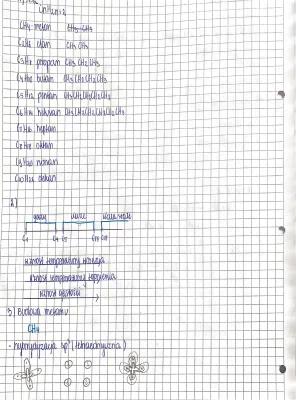 CnH2n+2
CH4 metan CH3 CH3
C2H6 etan CH3 CH3
C3H8 propan CH3 CH2 CH3
C4H10 butan CH3 CH2 CH2 CH3
C5H12 pentan CH3 CH2 CH2 CH2 CH3
C6H14 heksan CH3 CH2 CH2 CH2 CH2 CH3
C7H16 heptan
C8H18 oktan
C9H20 nonan
C10H22 dekan
2)
gazy ciecze ciała stałe
C1 C4 C5
wzrost temperatury wrzenia
wzrost temperatury topnienia
wzrost gęstości
3) Budowa metanu
CH4
- hybrydyzacja sp3 (tetraedryczna)